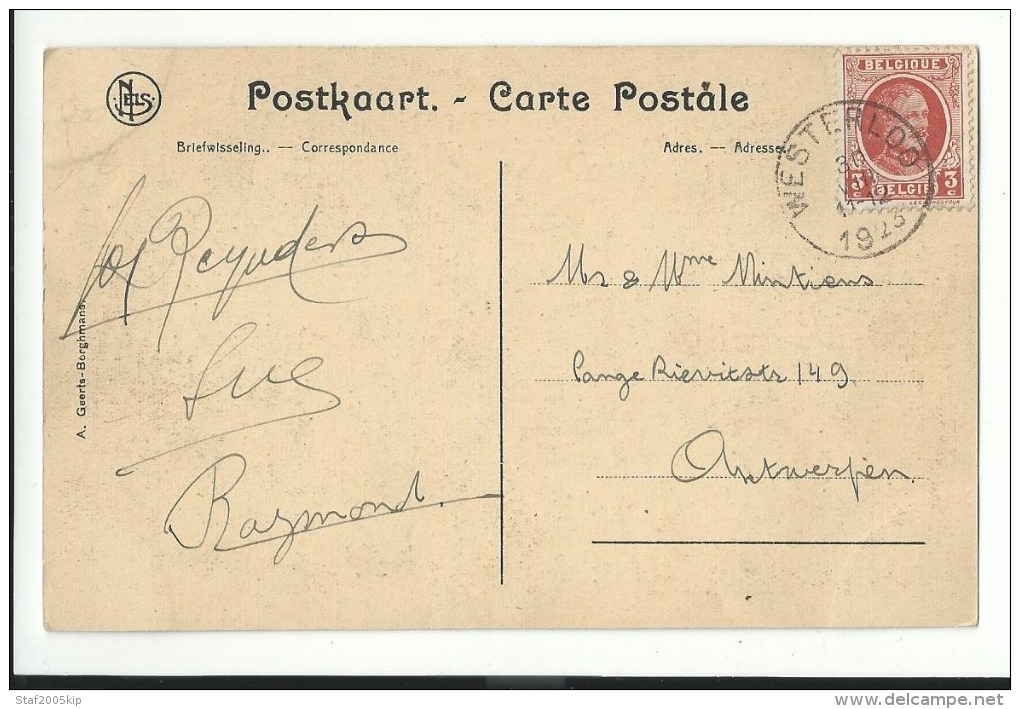 NELS
Postkaart. - Carte Postâle
Briefwisseling.. — Correspondance
Adres. — Adresse
BELGIQUE
3 3
C BELGIE C
WESTERLOO
30
11-12
1923
Jos Reynders
Raymond.
A. Geerts-Borghmans.
Mr & Mme Mintiens
Lange Rievitstr 149.
Antwerpen.
Staf2005kip
www.delcampe.net